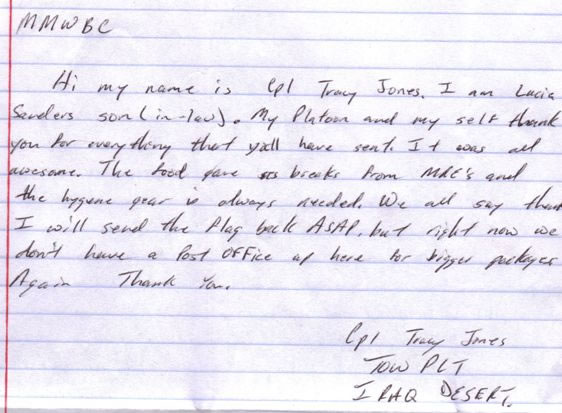 MMWBC
Hi my name is Cpl Tracy Jones. I am Lucia
Sanders son (in-law). My Platoon and my self thank
you for everything that y'all have sent. It was all
awesome. The food gave us breaks from MRE's and
the hygene gear is always needed. We all say than
I will send the flag back ASAP, but right now we
don't have a Post Office up here for bigger packages
Again Thank You.
Cpl Tracy Jones
TOW PLT
IRAQ DESERT.